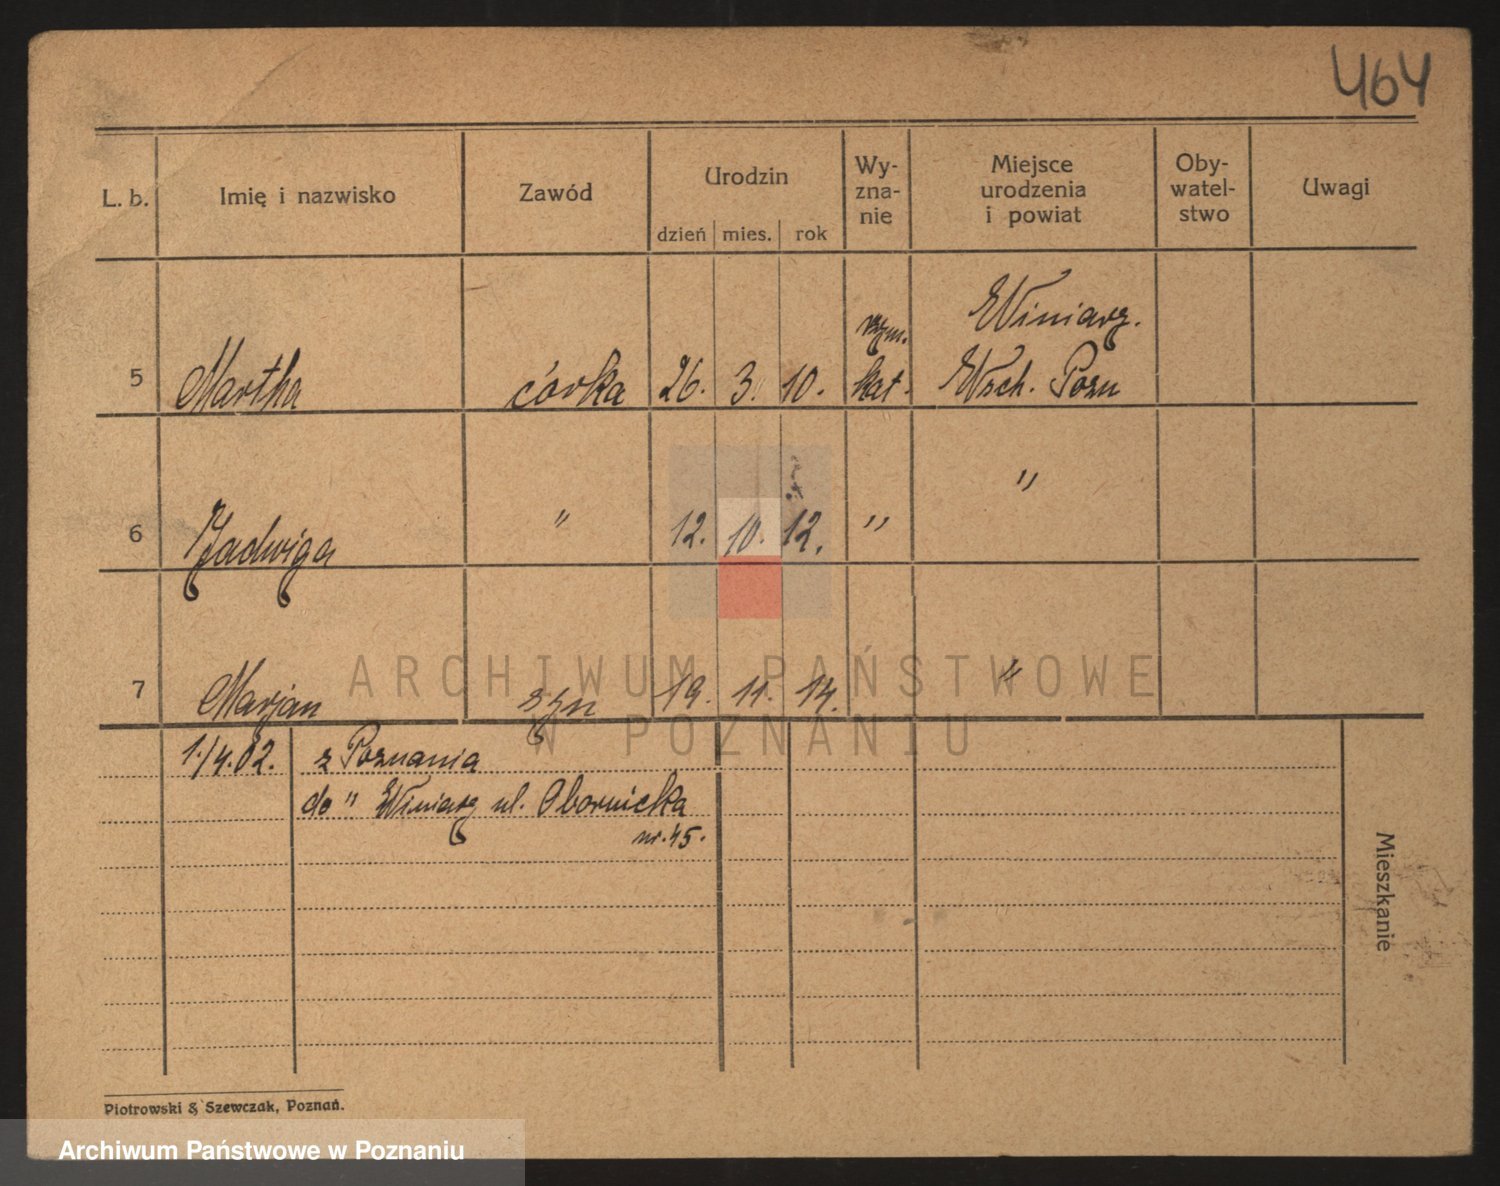 464
L. b. Imię i nazwisko Zawód Urodzin dzień mies. rok Wy-zna-nie Miejsce urodzenia i powiat Oby-watel-stwo Uwagi
Winiarz.
rzym.
5 Martha córka 26. 3. 10. kat. Wsch. Pozn
"
6 Jadwiga " 12. 10. 12. "
7 Marjan syn 19. 11. 14. "
ARCHIWUM PAŃSTWOWE
W POZNANIU
1./4.02. z Poznania
do " Winiarz ul. Obornicka
nr. 45.
Mieszkanie
Piotrowski & Szewczak, Poznań.
Archiwum Państwowe w Poznaniu